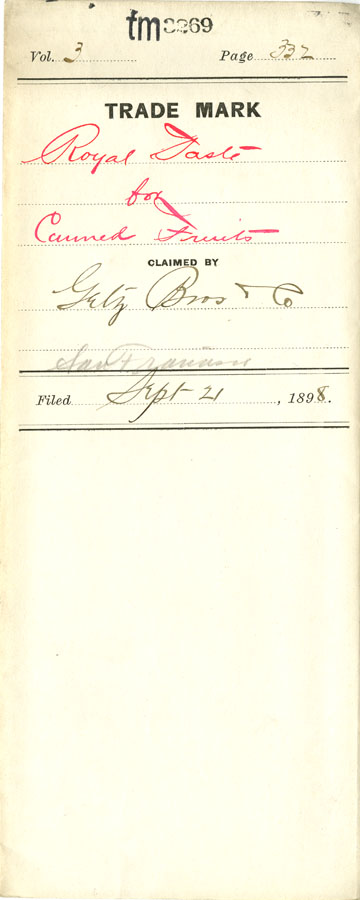 tm3269
Vol. 3 Page 332
TRADE MARK
Royal Taste
for
Canned Fruits
CLAIMED BY
Getz Bros & Co
San Francisco
Filed Sept 21, 1898.